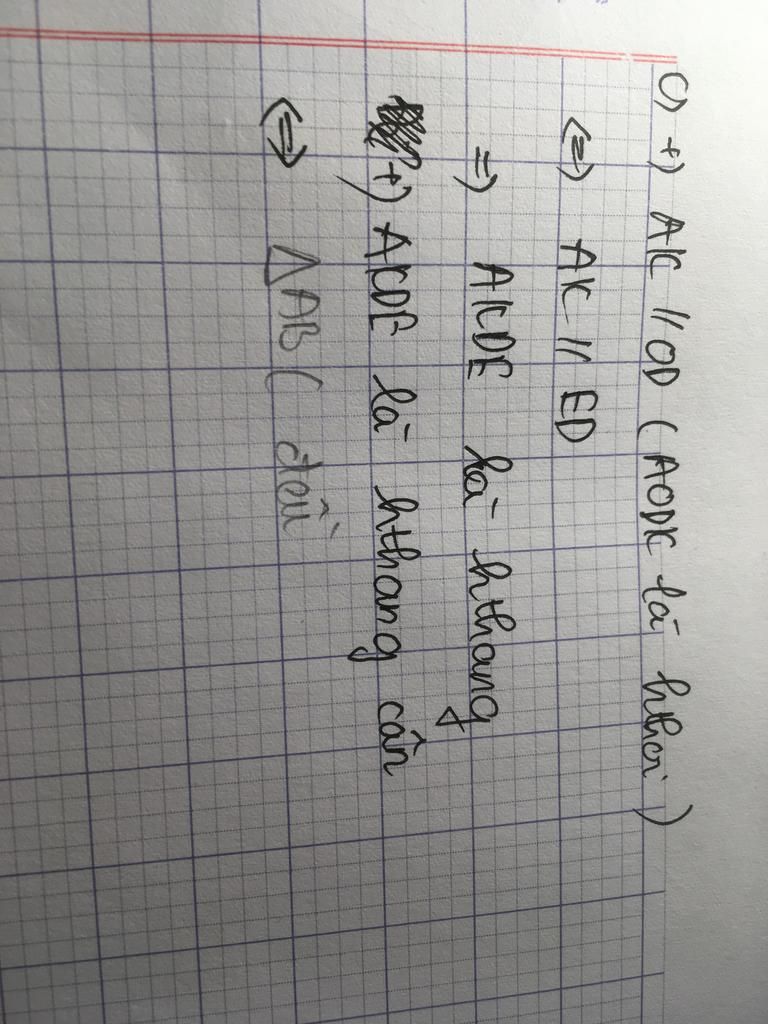 c) +) AK // OD (AODK là hthoi)
<=> AK // ED
=> AKDE là hthang
+) AKDE là hthang cân
<=> ΔABC đều